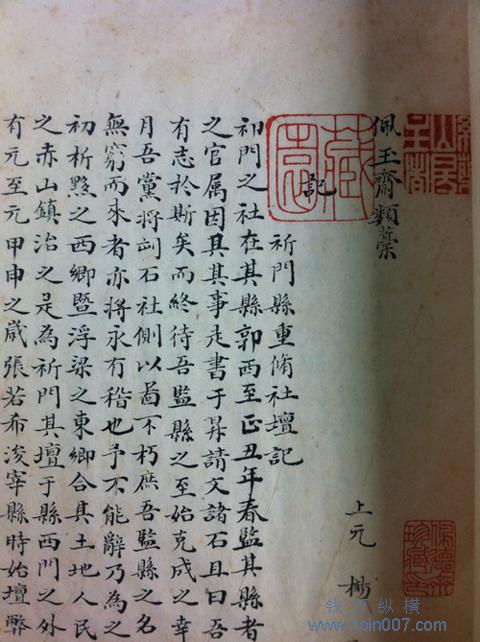 佩玉齋類藁
上元 楊
記
祈門縣重脩社壇記
祁門之社在其縣郭西至正丑年春監其縣者
之官属因其其事走書于昇請文諸石且曰吾
有志於斯矣而終待吾監縣之至始克成之幸
月吾黨將刻石社側以啚不朽庶吾監縣之名
無窮而來者亦將永有稽也予不能辭乃為之
初析黟之西鄉暨浮梁之東鄉合其土地人民
之赤山鎮治之是為祈門其壇于縣西門之外
有元至元甲申之歲張若希浚宰縣時始壇弊
钱币纵横
www.coin007.com